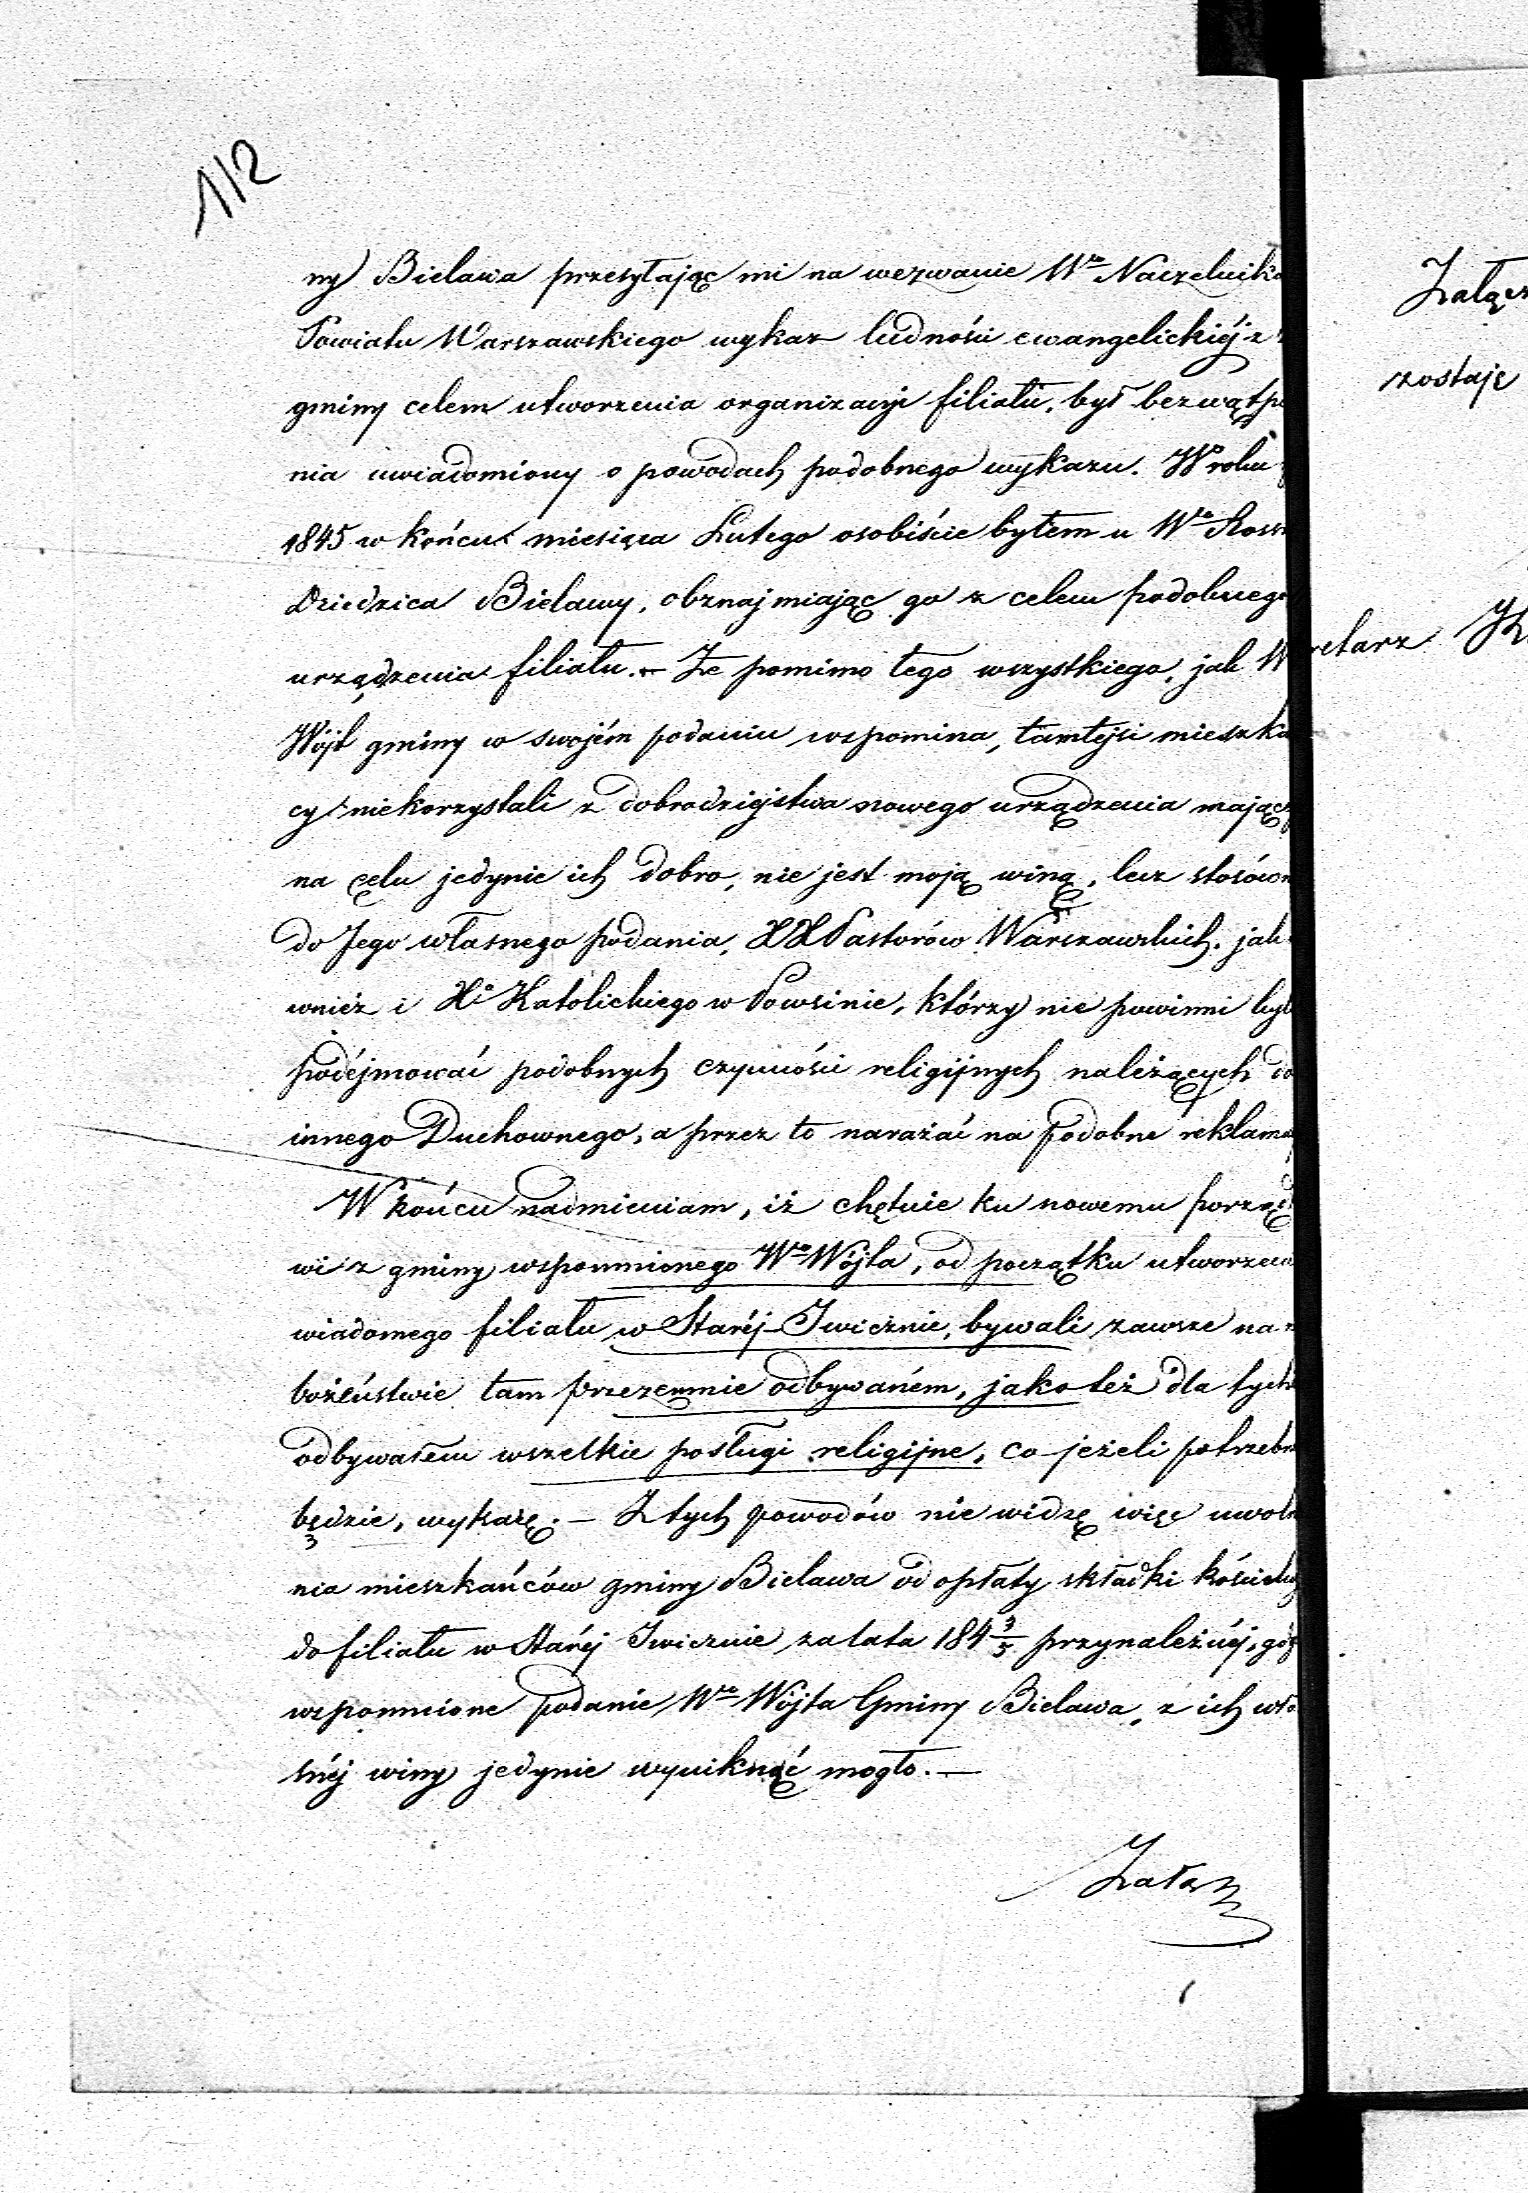 112
ny Bielawa przesyłając mi na wezwanie Wgo Naczelnika
Powiatu Warszawskiego wykaz ludności ewangelickiéj z
gminy celem utworzenia organizacyi filiału, był bezwątp
nia uwiadomiony o powodach podobnego wykazu. W roku
1845 w końcu miesiąca Lutego osobiście byłem u Wgo
Dziedzica Bielawy, obznajmiając go z celem podobnego
urządzenia filiału. – Że pomimo tego wszystkiego, jak W
Wójt gminy w swojém podaniu wspomina, tamtejsi mieszka
cy niekorzystali z dobrodziejstwa nowego urządzenia mając
na celu jedynie ich dobro, nie jest moją winą, lecz stosówn
do Jego własnego podania, XX Pastorów Warszawskich, jak
wnież i Xa Katolickiego w Powsinie, którzy nie powinni byli
podéjmować podobnych czynności religijnych należących do
innego Duchownego, a przez to narażać na podobne reklama
W końcu nadmieniam, iż chętnie ku nowemu porząd
wi z gminy wspomnionego Wgo Wójta, od początku utworzen
wiadomego filiału w Staréj Iwicznie, bywali zawsze na
bożeństwie tam przezemnie odbywaném, jako też dla tych
odbywałem wszelkie posługi religijne, co jeżeli potrzebn
będzie, wykażę. – Z tych powodów nie widzę więc uwoln
nia mieszkańców gminy Bielawa od opłaty składki kościeln
do filiału w Staréj Iwicznie za lata 184 3/5 przynależnéj, gd
wspomnione podanie Wgo Wójta Gminy Bielawa, z ich wła
snéj winy jedynie wyniknąć mogło. –
Załącz
Załącz
zostaje
retarz